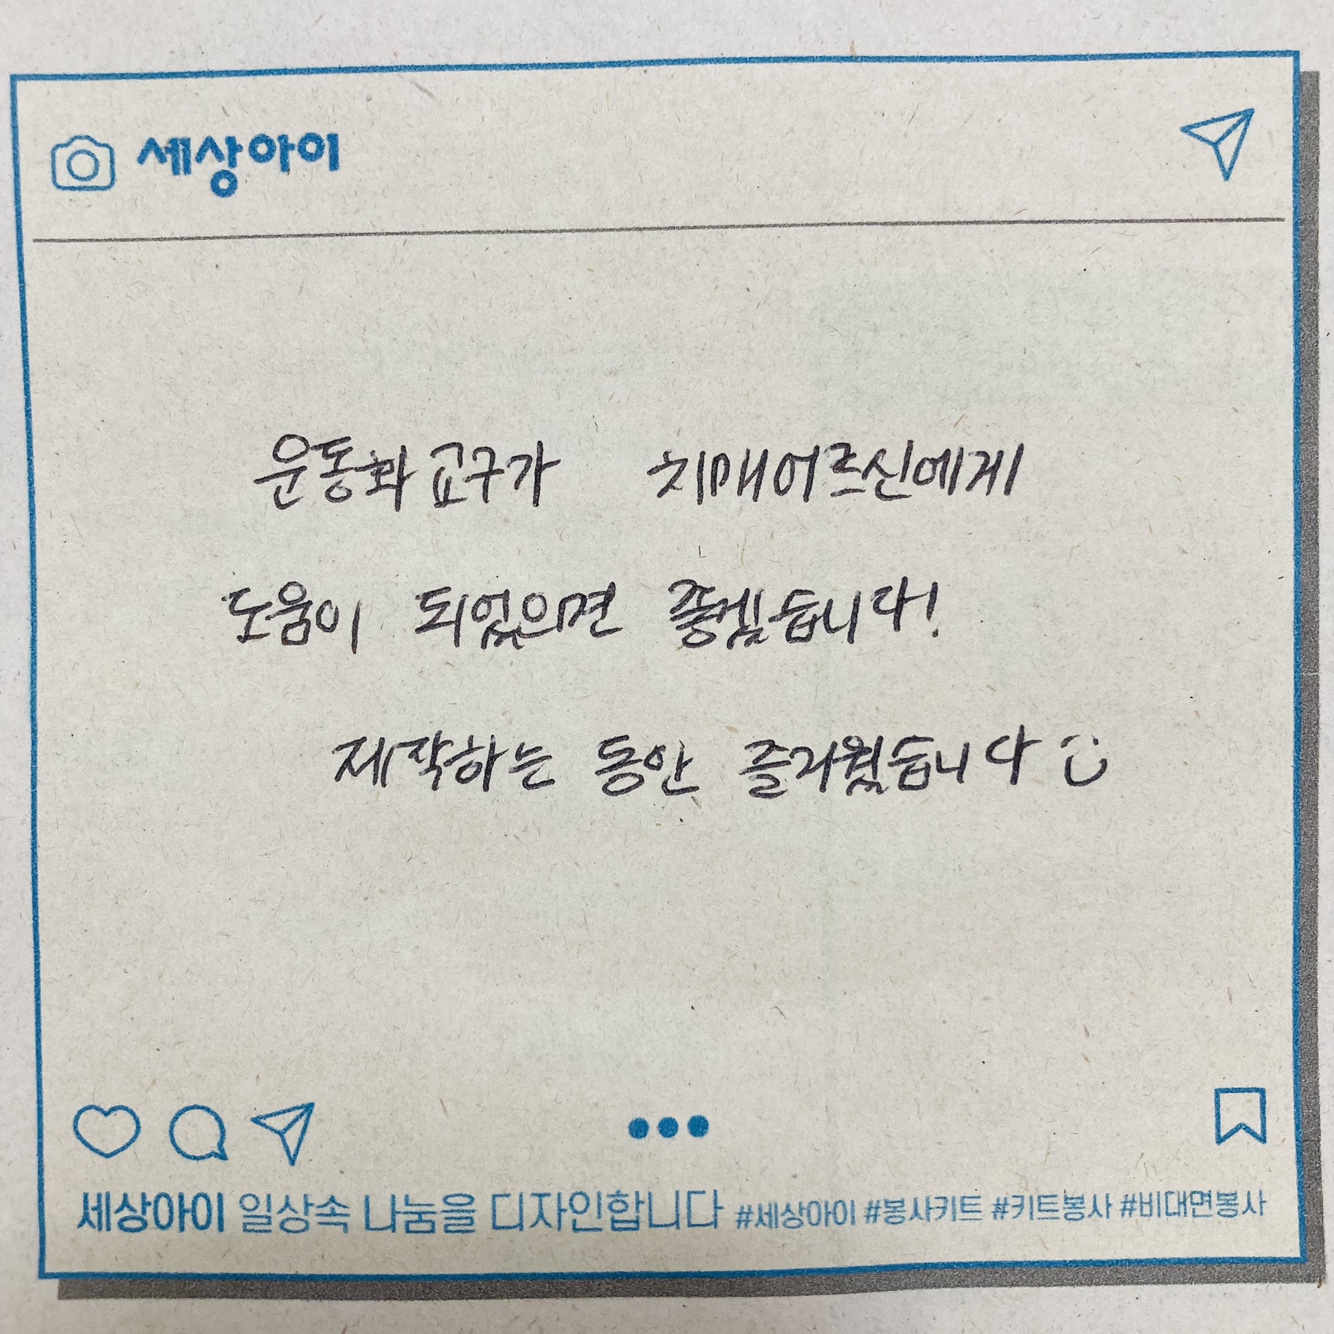 세상아이
운동화교구가 치매어르신에게
도움이 되었으면 좋겠습니다!
제작하는 동안 즐거웠습니다
세상아이 일상속 나눔을 디자인합니다 #세상아이 #봉사키트 #키트봉사 #비대면봉사